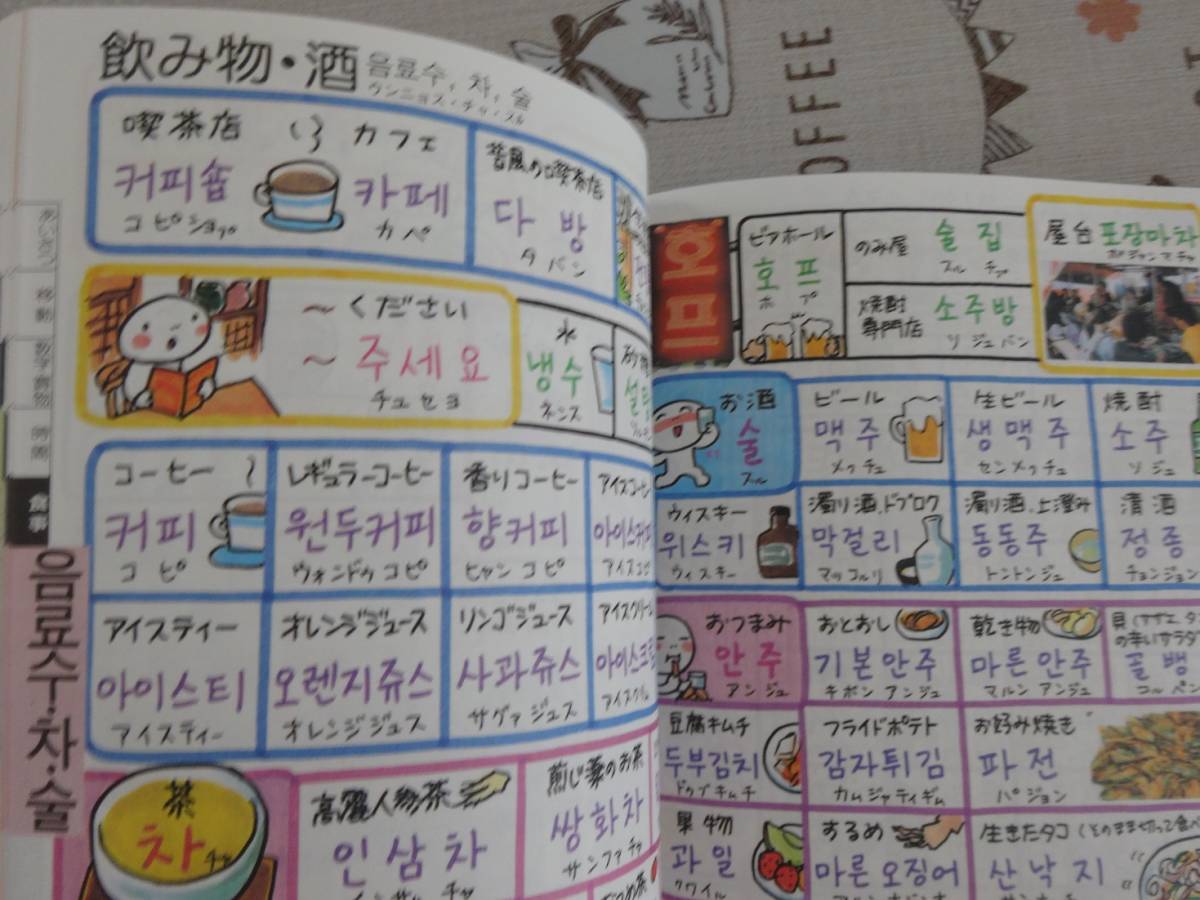 飲み物・酒
음료수, 차, 술
ウンニョス・チャ・スル
喫茶店
커피숍
コピショプ
カフェ
카페
カペ
昔風の喫茶店
다방
タバン
~ください
~주세요
チュセヨ
水
냉수
ネンス
コーヒー
커피
コピ
レギュラーコーヒー
원두커피
ウォンドゥコピ
香りコーヒー
향커피
ヒャンコピ
アイスコーヒー
아이스커피
アイスコピ
アイスティー
아이스티
アイスティー
オレンジジュース
오렌지쥬스
オレンジジュース
リンゴジュース
사과쥬스
サグァジュス
アイスクリーム
茶
차
チャ
高麗人参茶
인삼차
煎じ薬のお茶
쌍화차
サンファチャ
食事
음료수·차·술
호프
ビアホール
호프
ホプ
のみ屋
술집
スルチプ
焼酎専門店
소주방
ソジュバン
屋台
포장마차
ポジャンマチャ
お酒
술
スル
ビール
맥주
メクチュ
生ビール
생맥주
センメクチュ
焼酎
소주
ソジュ
ウィスキー
위스키
ウィスキー
濁り酒、ドブロク
막걸리
マッコルリ
濁り酒、上澄み
동동주
トンドンジュ
清酒
정종
チョンジョン
おつまみ
안주
アンジュ
おとおし
기본안주
キボンアンジュ
乾き物
마른안주
マルンアンジュ
골뱅
コルベン
豆腐キムチ
두부김치
トゥブキムチ
フライドポテト
감자튀김
カムジャティギム
お好み焼き
파전
パジョン
果物
과일
クワイル
するめ
마른오징어
生きたタコ(そのまま切って食べ
산낙지
COFFEE